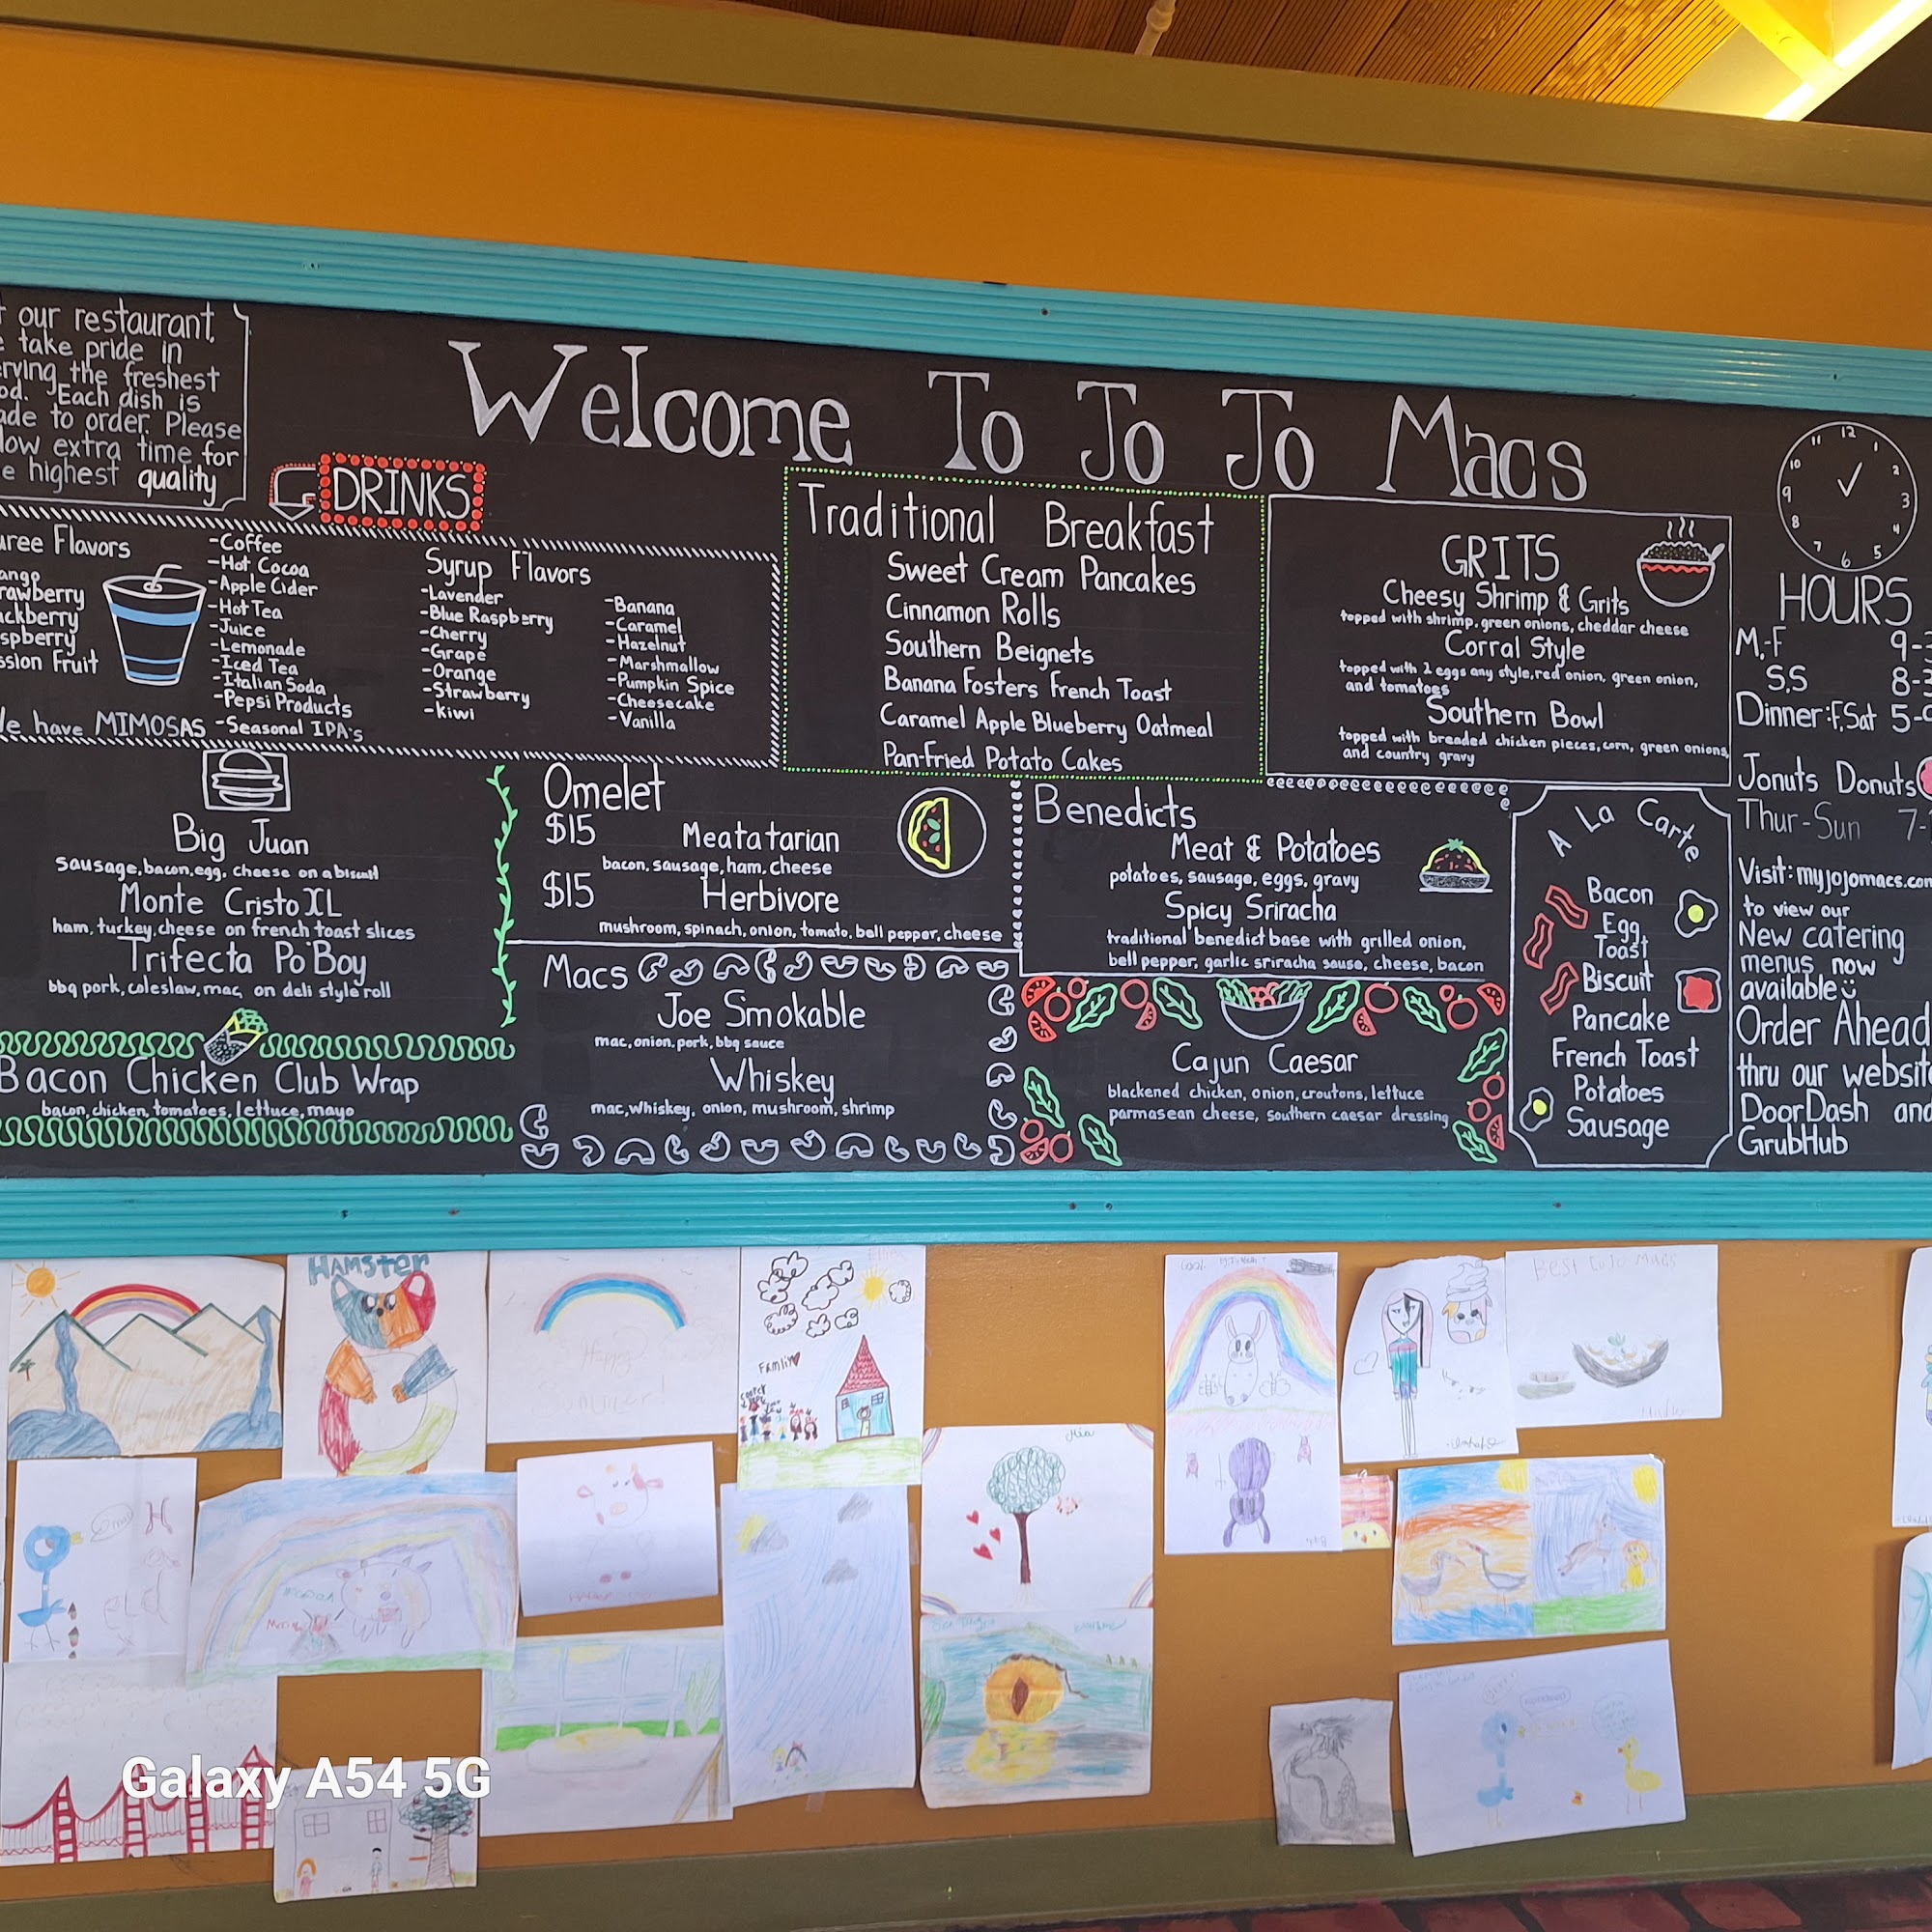 our restaurant.
take pride in
the freshest
Each dish is
to order. Please
extra time for
highest quality
Welcome To Jo Jo Macs
DRINKS
Flavors
Fruit
have MIMOSAS
-Coffee
-Hot Cocoa
-Apple Cider
-Hot Tea
-Juice
-Lemonade
-Iced Tea
-Italian Soda
-Pepsi Products
-Seasonal IPA's
Syrup Flavors
-Lavender
-Blue Raspberry
-Cherry
-Grape
-Orange
-Strawberry
-Kiwi
-Banana
-Caramel
-Hazelnut
-Marshmallow
-Pumpkin Spice
-Cheesecake
-Vanilla
Traditional Breakfast
Sweet Cream Pancakes
Cinnamon Rolls
Southern Beignets
Banana Fosters French Toast
Caramel Apple Blueberry Oatmeal
Pan-Fried Potato Cakes
GRITS
Cheesy Shrimp & Grits
topped with shrimp, green onions, cheddar cheese
Corral Style
topped with 2 eggs any style, red onion, green onion,
and tomatoes
Southern Bowl
topped with breaded chicken pieces, corn, green onions,
and country gravy
12
11 1
10 2
9 3
8 4
7 5
6
HOURS
M,-F 9-
S,S 8-
Dinner: F, Sat 5-
Jonuts Donuts
Thur-Sun 7-
Visit: myjojomacs.com
to view our
New catering
menus now
available
Order Ahead
thru our website
DoorDash and
GrubHub
Big Juan
sausage, bacon, egg, cheese on a biscuit
Monte Cristo XL
ham, turkey, cheese on french toast slices
Trifecta Po'Boy
bbq pork, coleslaw, mac, on deli style roll
Bacon Chicken Club Wrap
bacon, chicken, tomatoes, lettuce, mayo
Omelet
$15 Meatatarian
bacon, sausage, ham, cheese
$15 Herbivore
mushroom, spinach, onion, tomato, bell pepper, cheese
Macs
Joe Smokable
mac, onion, pork, bbq sauce
Whiskey
mac, whiskey, onion, mushroom, shrimp
Benedicts
Meat & Potatoes
potatoes, sausage, eggs, gravy
Spicy Sriracha
traditional benedict base with grilled onion,
bell pepper, garlic sriracha sause, cheese, bacon
Cajun Caesar
blackened chicken, onion, croutons, lettuce
parmasean cheese, southern caesar dressing
A La Carte
Bacon
Egg
Toast
Biscuit
Pancake
French Toast
Potatoes
Sausage
HAMSTER
Happy
Summer!
FAMLIY
BEST JoJo MACS
Galaxy A54 5G